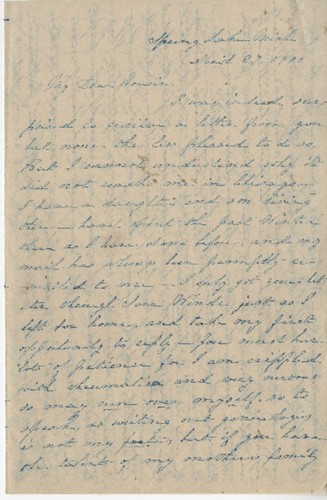 Spring Lake Mich.
April 27, 1900
My Dear Cousin
I was indeed, sur-
prised to receive a letter from you
but none the less pleased to do so.
But I cannot understand why it
did not reach me in Chicago—
I have a daughter and son living
there – have spent the past Winter
there as I have done before – and my
mail has always been promptly re-
mailed to me – I only got your let-
ter through just as I
left for home, and take my first
opportunity to reply – you must have
lots of patience for I am crippled
with rheumatism and very nervous
so may run over myself, so to
speak, so writing out genealogies
is not my forte; but if you have
the talent of my mothers family